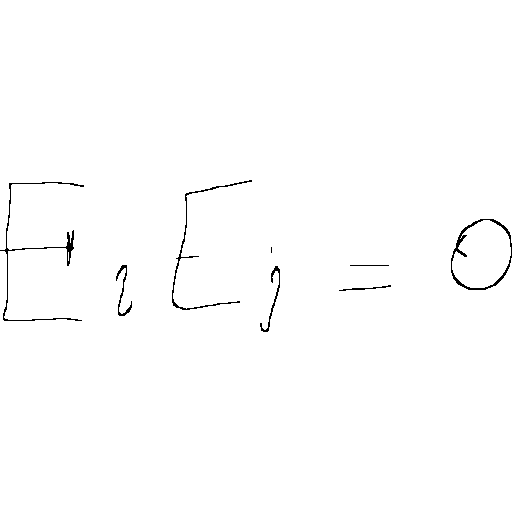 E_i E_j = 0